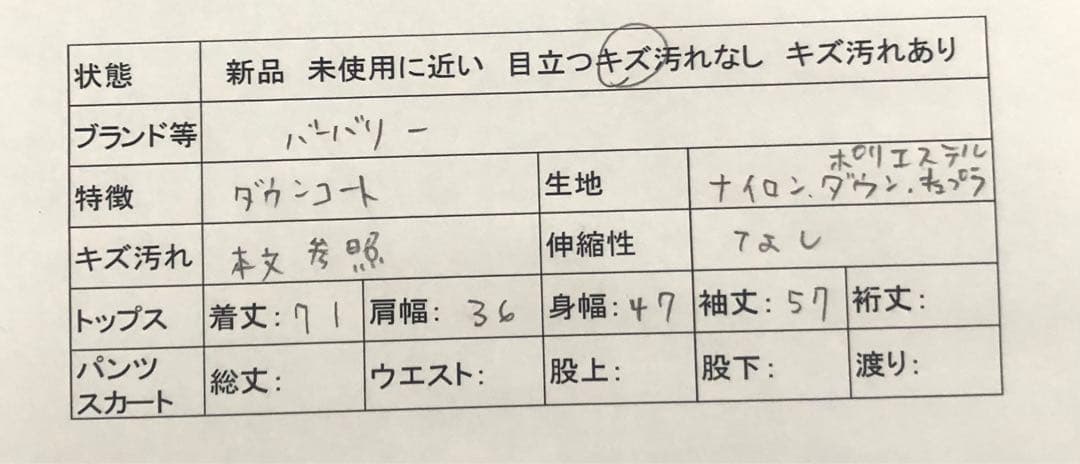 状態 新品 未使用に近い 目立つキズ汚れなし キズ汚れあり
ブランド等 バーバリー
特徴 ダウンコート 生地 ポリエステル
ナイロン、ダウン、キュプラ
キズ汚れ 本文参照 伸縮性 なし
トップス 着丈:71 肩幅:36 身幅:47 袖丈:57 裄丈:
パンツ
スカート 総丈: ウエスト: 股上: 股下: 渡り: